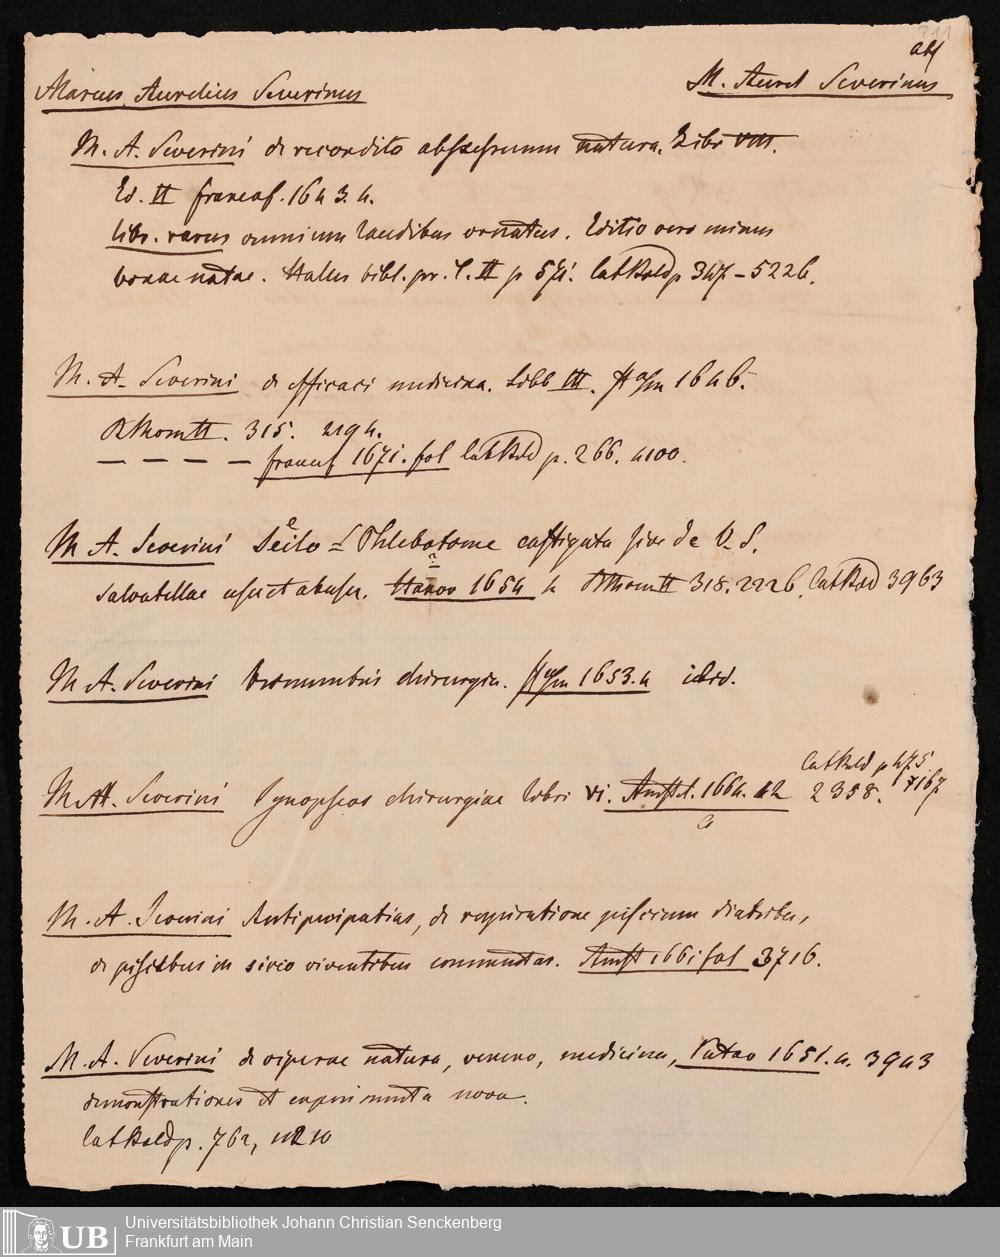 abs
Marcus Aurelius Severinus
M. Aurel Severinus
M. A. Severini de recondita abscessuum natura. Libr VIII.
Ed. II francof. 1643. 4.
libr. rarus omnium laudibus ornatus. Editio vero minus
bonae notae. Haller bibl. pr. T. II p 571. Cat Bald p 347 – 5226.
M. A. Severini de efficaci medicina. Libb III. ffofm 1646.
II. 315. 2194.
— — — — francof 1671. fol Cat Bald p. 266. 4100.
M. A. Severini Seilo = Phlebotome castigata sive de V. S.
salvatellae usu et abusu. Hanov 1654 4 II 318. 2226. Cat Bald 3963
M A. Severini trimembris chirurgia. ffofm 1653. 4 ibid.
M. A. Severini Synopseos chirurgiae libri vi. Amstel. 1664. 12 2358.
Cat Bald p 475
7167
M. A. Severini Antiperipatias, de respiratione piscium diatribe,
de piscibus in sicco viventibus commentar. Amst 1661 fol 3716.
M. A. Severini de viperae natura, veneno, medicina, Patav 1651. 4. 3943
demonstrationes et experimenta nova.
Cat Bald p. 762,
Universitätsbibliothek Johann Christian Senckenberg
Frankfurt am Main
UB